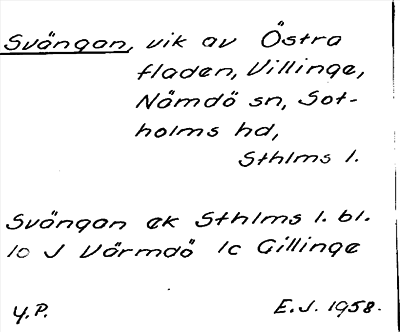 Svängan, vik av Östra
fladen, Villinge,
Nämdö sn, Sot-
holms hd,
Sthlms l.
Svängan ek Sthlms l. bl.
10 J Värmdö 1c Gillinge
Y.P. E.J. 1958.